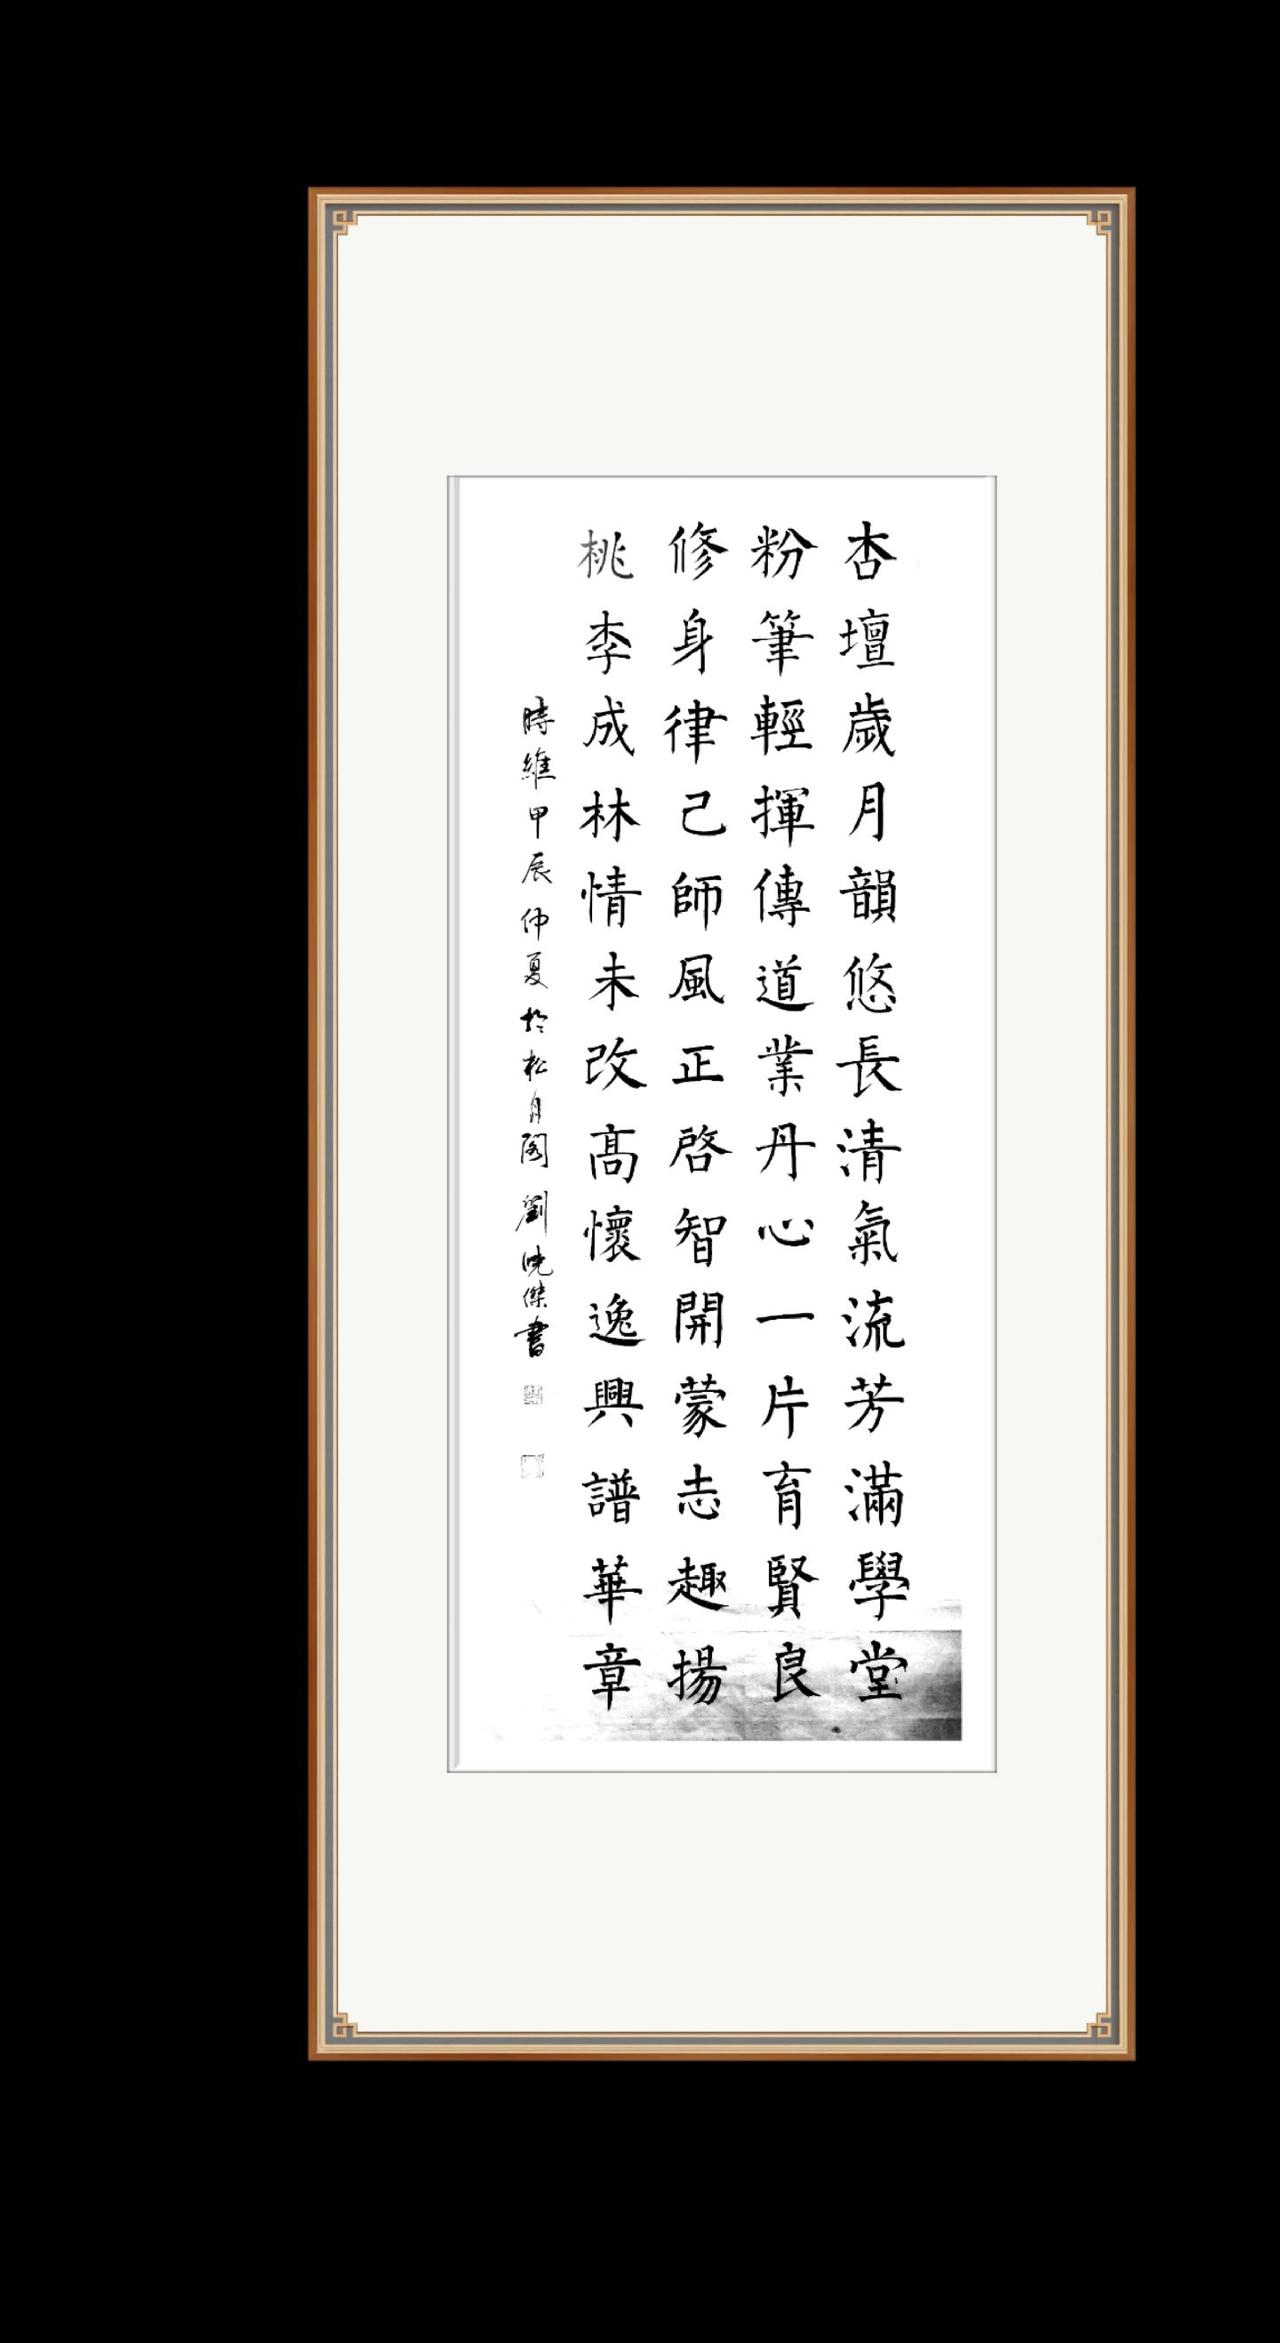 杏壇歲月韻悠長清氣流芳滿學堂
粉筆輕揮傳道業丹心一片育賢良
修身律己師風正啓智開蒙志趣揚
桃李成林情未改高懷逸興譜華章
時維甲辰仲夏於松月閣劉曉傑書